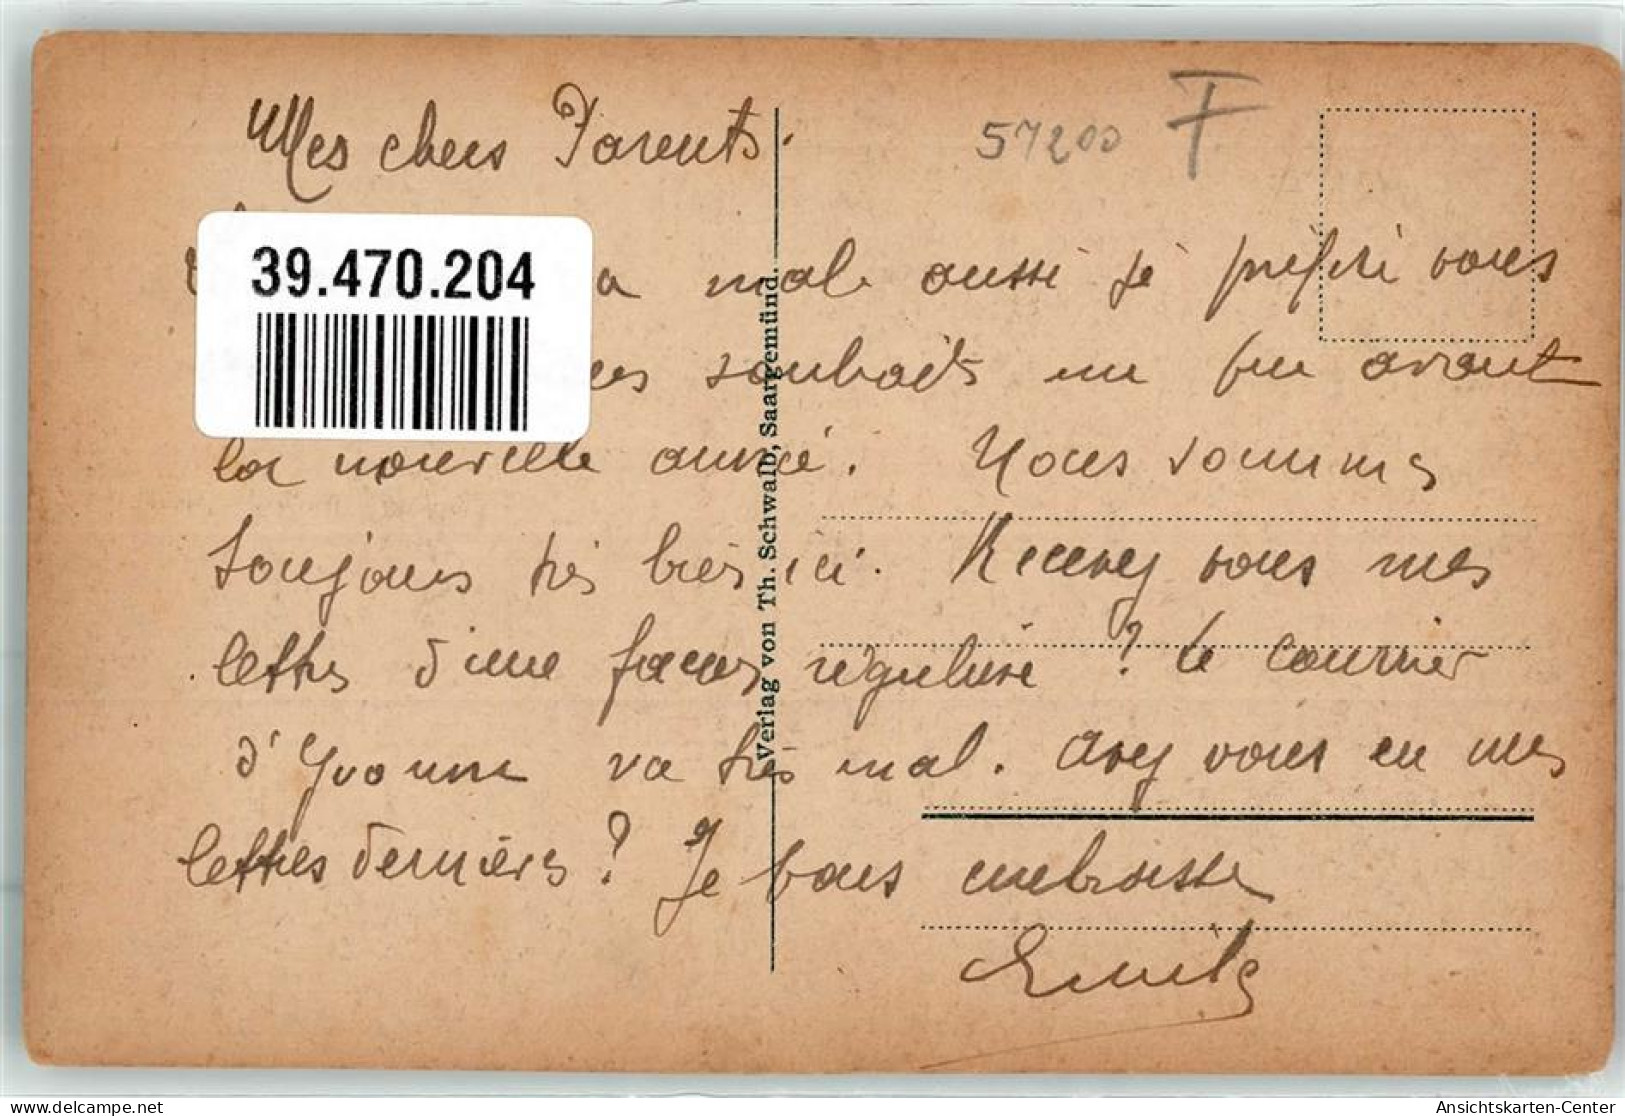 Mes chers Parents.
57200 F.
39.470.204
va mal aussi je préfère vous
mes souhaits un peu avant
la nouvelle année. Nous sommes
toujours très bien ici. Recevez vous mes
lettres d'une façon régulière ? le courrier
d'Yvonne va très mal. Avez vous eu mes
lettres dernières ? Je vous embrasse
Emile
Verlag von Th. Schwalb, Saargemünd.
delcampe.net
Ansichtskarten-Center